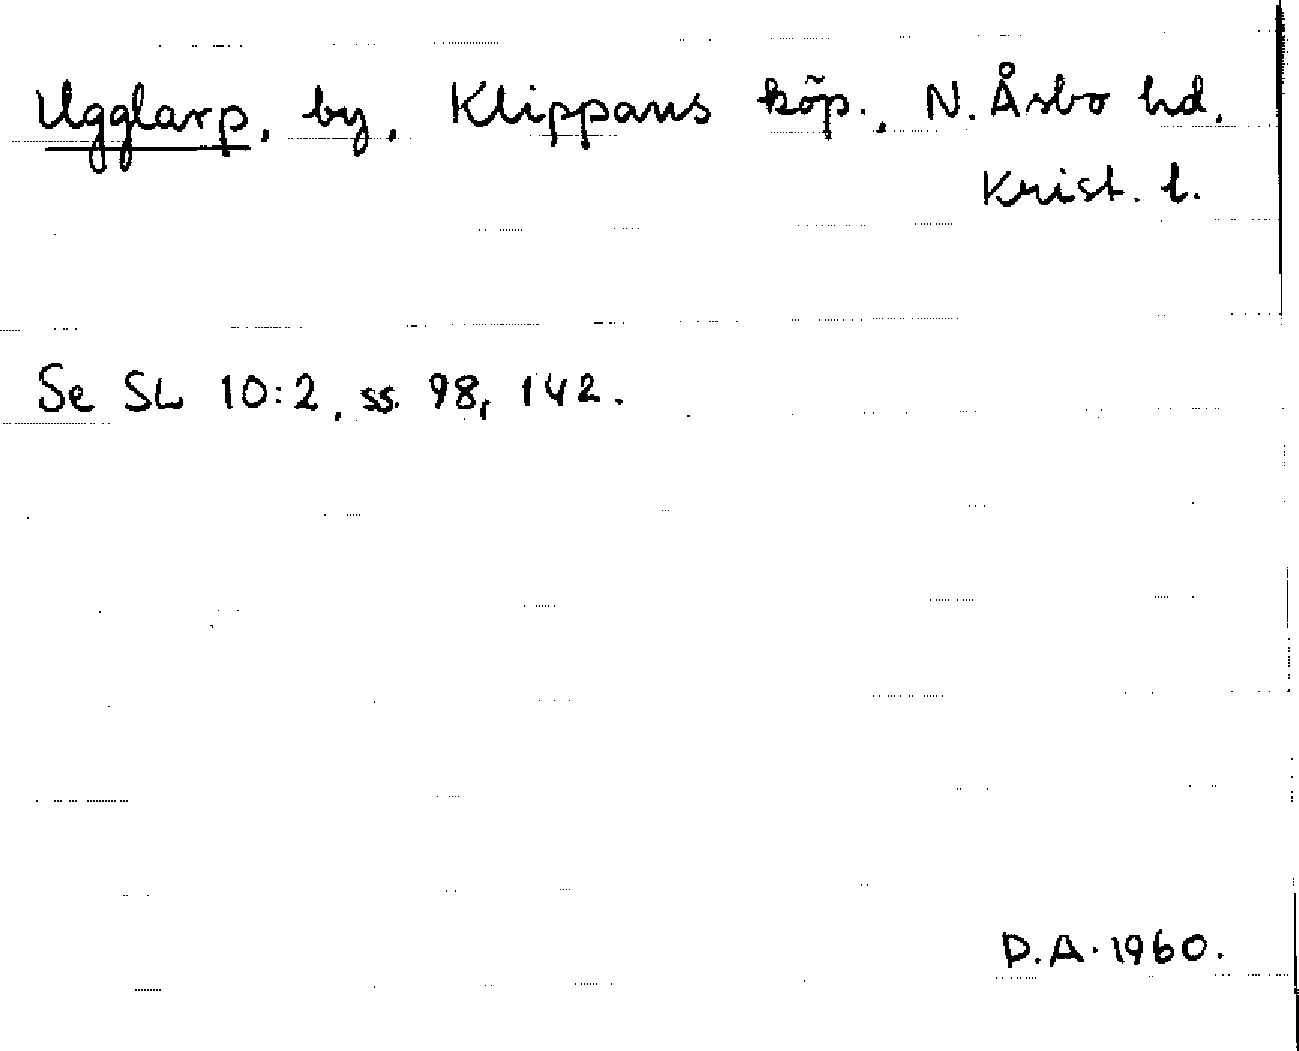 Ugglarp, by, Klippans köp., N. Åsbo hd.
Krist. l.
Se SL 10:2, ss. 98, 142.
D.A. 1960.